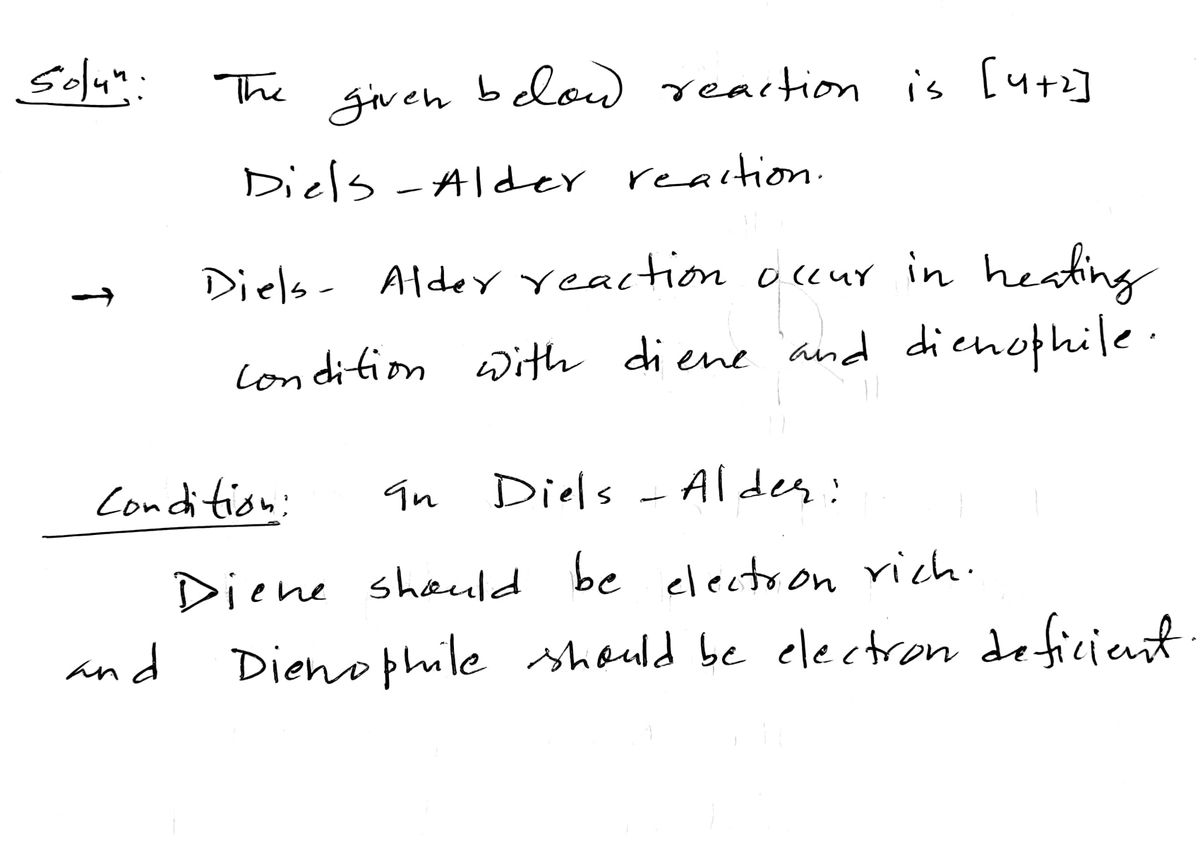 Solun: The given below reaction is [4+2]
Diels - Alder reaction.
→ Diels - Alder reaction occur in heating
condition with diene and dienophile.
Condition: In Diels - Alder:
Diene should be electron rich.
and Dienophile should be electron deficient.